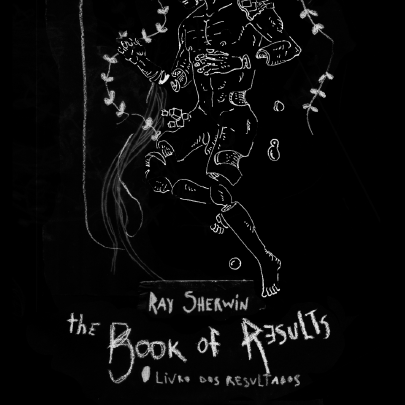 RAY SHERWIN
the
BOOK of RESULTS
O LIVRO DOS RESULTADOS